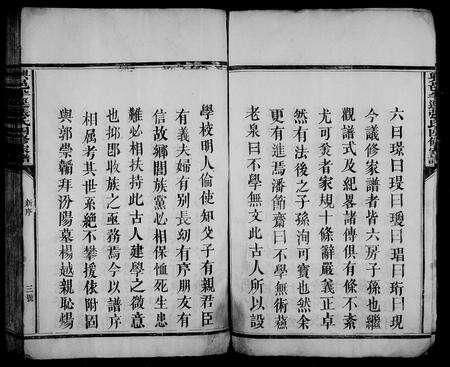 六曰璟曰瑗曰瓊曰瑁曰珩曰現
今議修家譜者皆六房子孫也繼
觀譜式及紀畧諸傳俱有條不紊
尤可爱者家規十條辭嚴義正卓
然有法後之子孫洵可寶也然余
更有進焉潘節齋曰不學無術蘓
老泉曰不學無文此古人所以設
學校明人倫使知父子有親君臣
有義夫婦有别長幼有序朋友有
信故鄉閭族黨必相保恤死生患
難必相扶持此古人建學之微意
也抑卽收族之亟務焉今以譜序
相属考其世系絶不攀援依附固
與郭崇韜拜汾陽墓楊越親恥煬
新序
三號